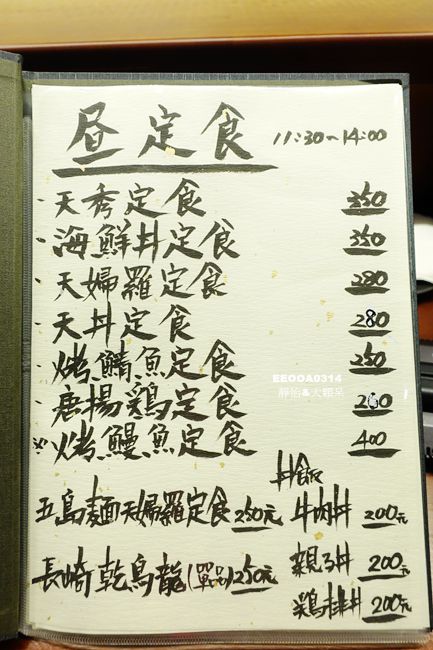 昼定食 11:30~14:00
天秀定食 350
海鮮丼定食 350
天婦羅定食 280
天丼定食 280
烤鯖魚定食 250
EEOOA0314
靜怡&大顆呆
唐揚鶏定食 260
烤鰻魚定食 400
丼飯
五島麺天婦羅定食 250元
牛肉丼 200元
長崎乾烏龍(單品)250元
親子丼 200元
鶏排丼 200元